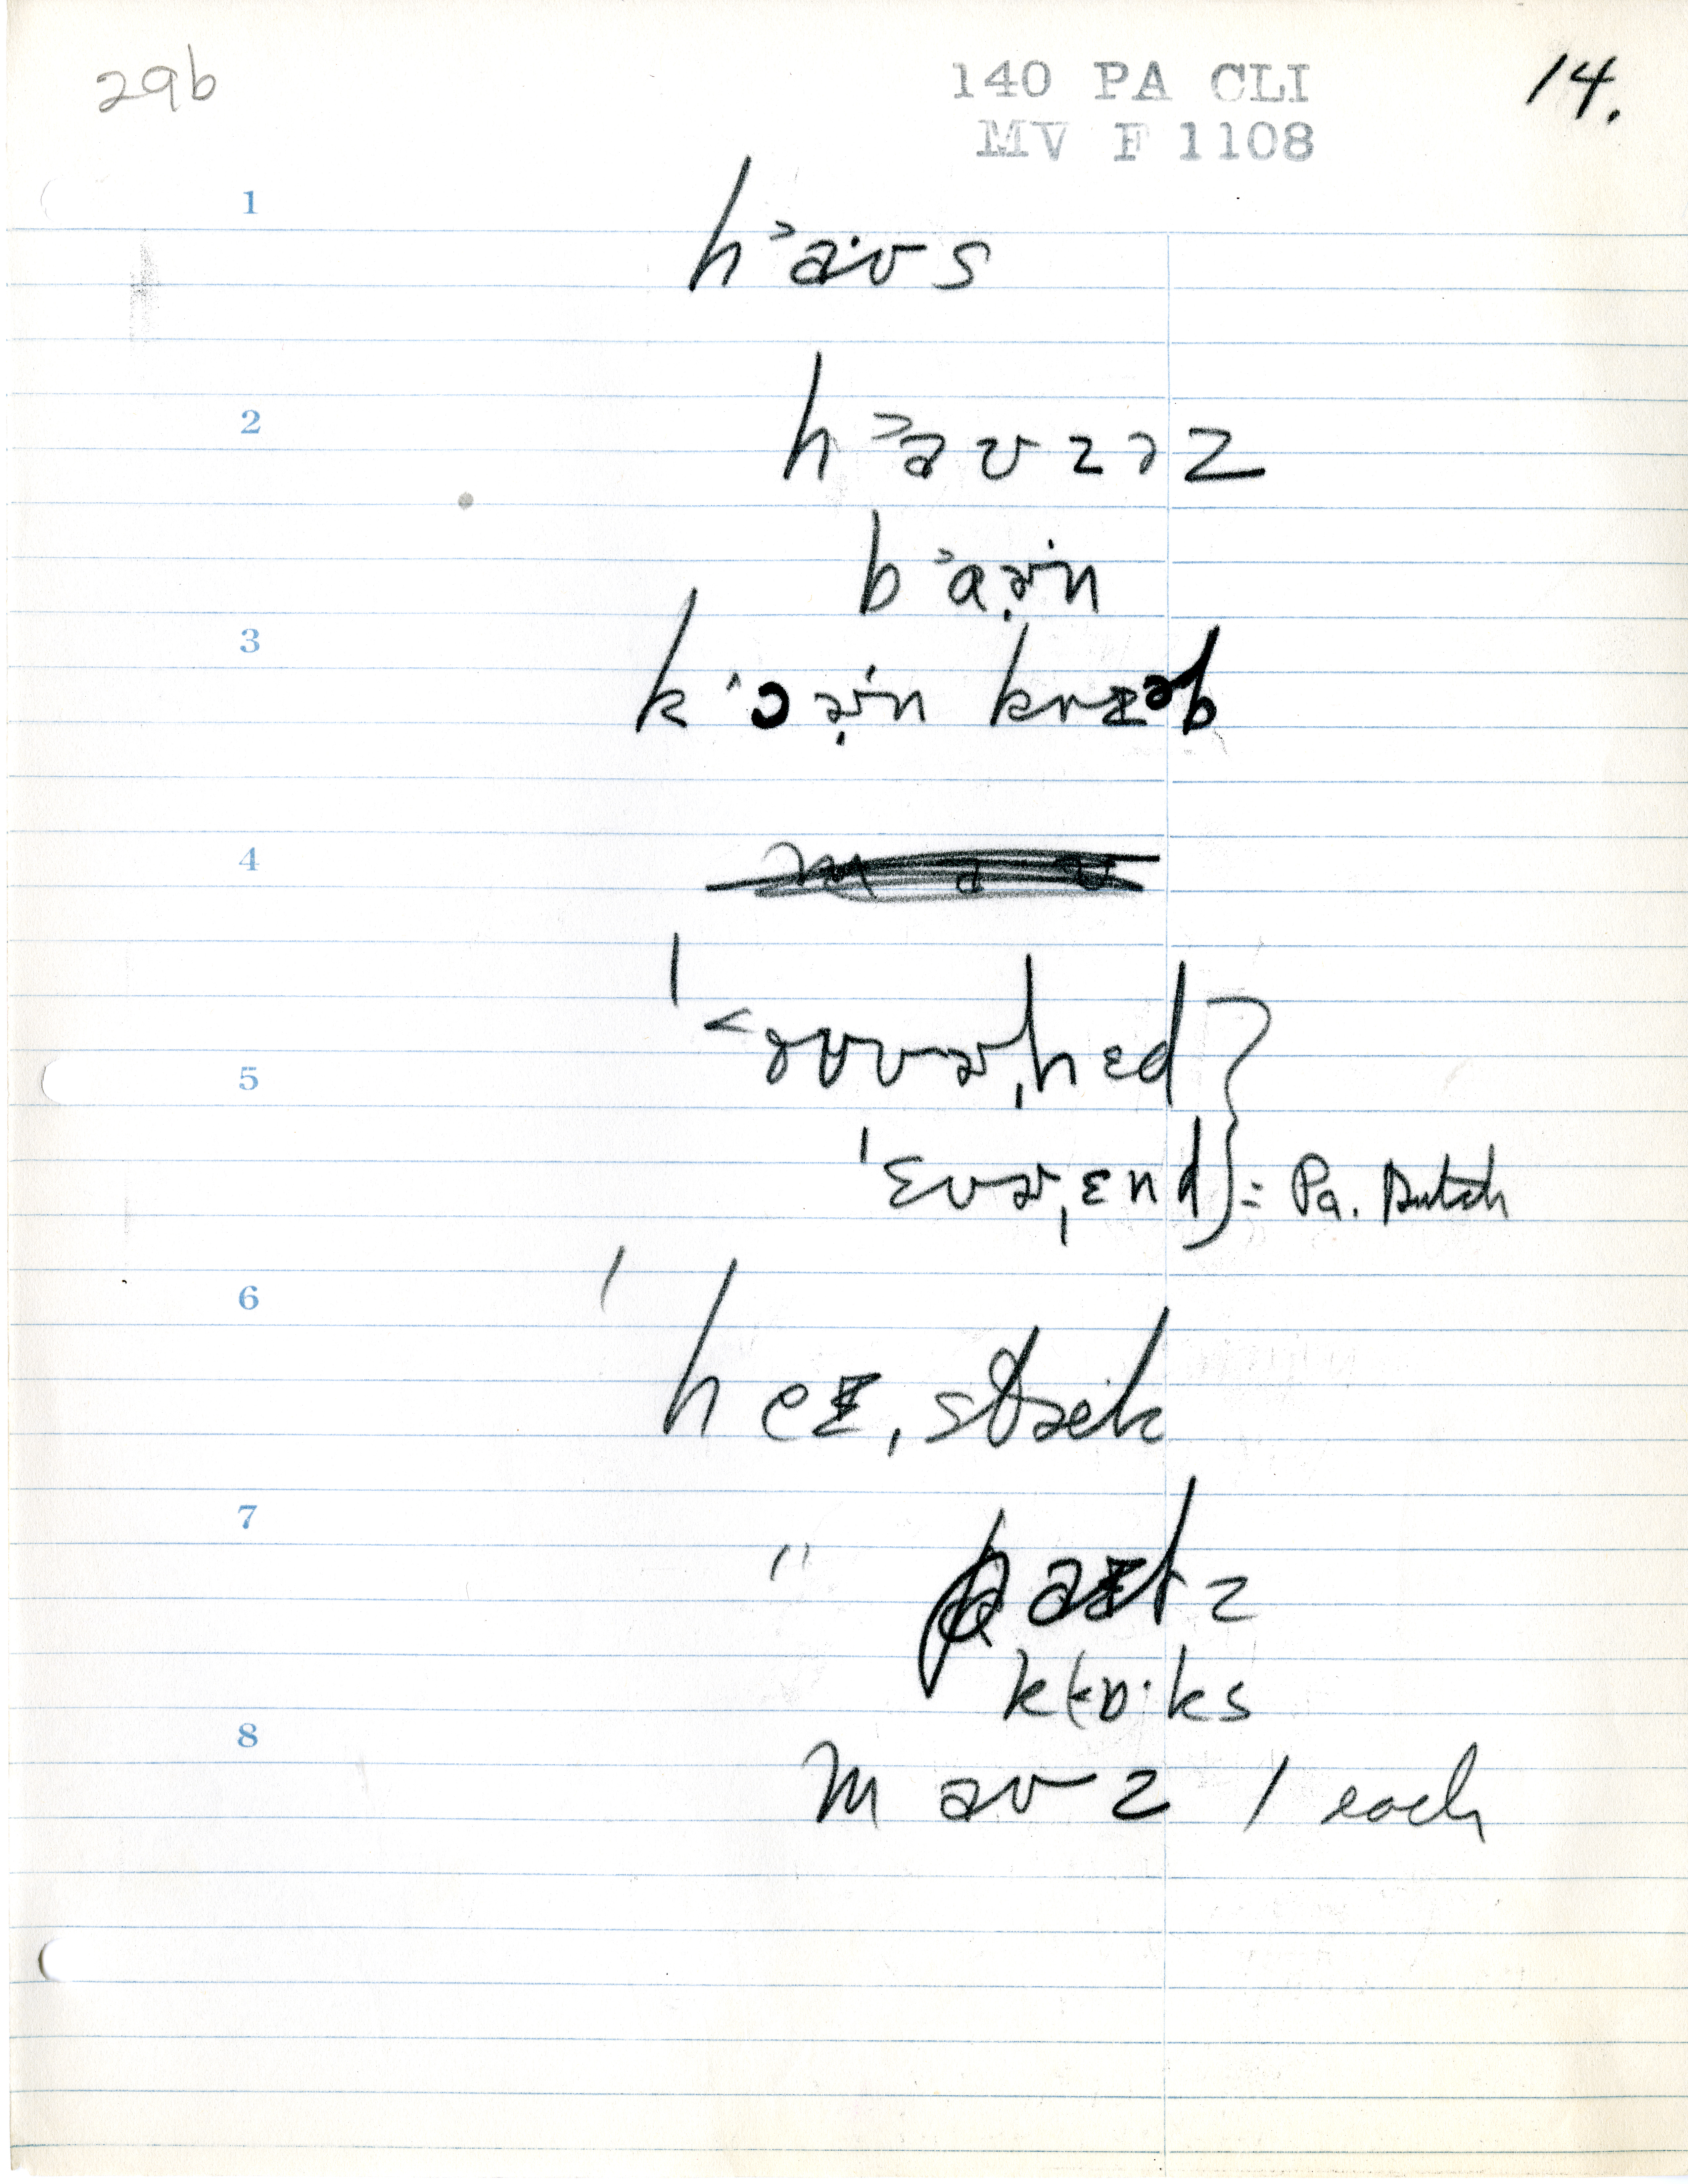 29b
140 PA CLI
14.
MV F 1108
1
h˃aˑʊs
2
h˃aʊzəz
b˃aɚ̣ˑn
3
k˂ɔɚ̣ˑn krɪəb
4
5
ˈ˂oʊvɚˌhɛd
ˈɛvɚˌɛnd } = Pa. Dutch
6
ˈheɪˌstæk
7
" z
kʟɒˑks
8
maʊz / each